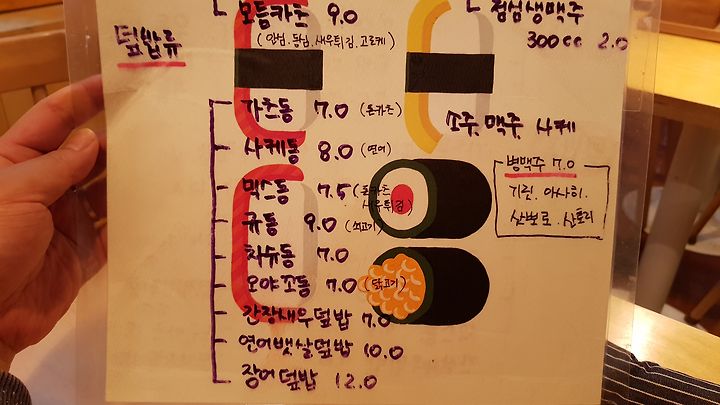 모듬카츠 9.0
(안심.등심.새우튀김.고로케)
덮밥류
가츠동 7.0 (돈카츠)
사케동 8.0 (연어)
믹스동 7.5 (돈카츠 새우튀김)
규동 9.0 (쇠고기)
차슈동 7.0
오야꼬동 7.0 (닭고기)
간장새우덮밥 7.0
연어뱃살덮밥 10.0
장어덮밥 12.0
점심생맥주
300cc 2.0
소주, 맥주, 사케
병맥주 7.0
기린. 아사히.
삿뽀로. 산토리